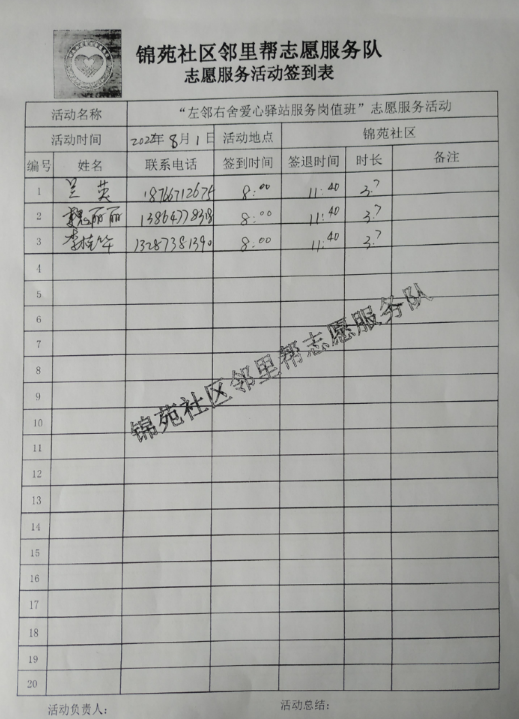 锦苑社区邻里帮志愿服务队
志愿服务活动签到表
活动名称 “左邻右舍爱心驿站服务岗值班”志愿服务活动
活动时间 2022年8月1日 活动地点 锦苑社区
编号 姓名 联系电话 签到时间 签退时间 时长 备注
1 兰英 18766712675 8:00 11:40 3.7
2 魏丽丽 8:00 11:40 3.7
3 13287381390 8:00 11:40 3.7
4
5
6
7
8
9
10
11
12
13
14
15
16
17
18
19
20
锦苑社区邻里帮志愿服务队
活动负责人: 活动总结: